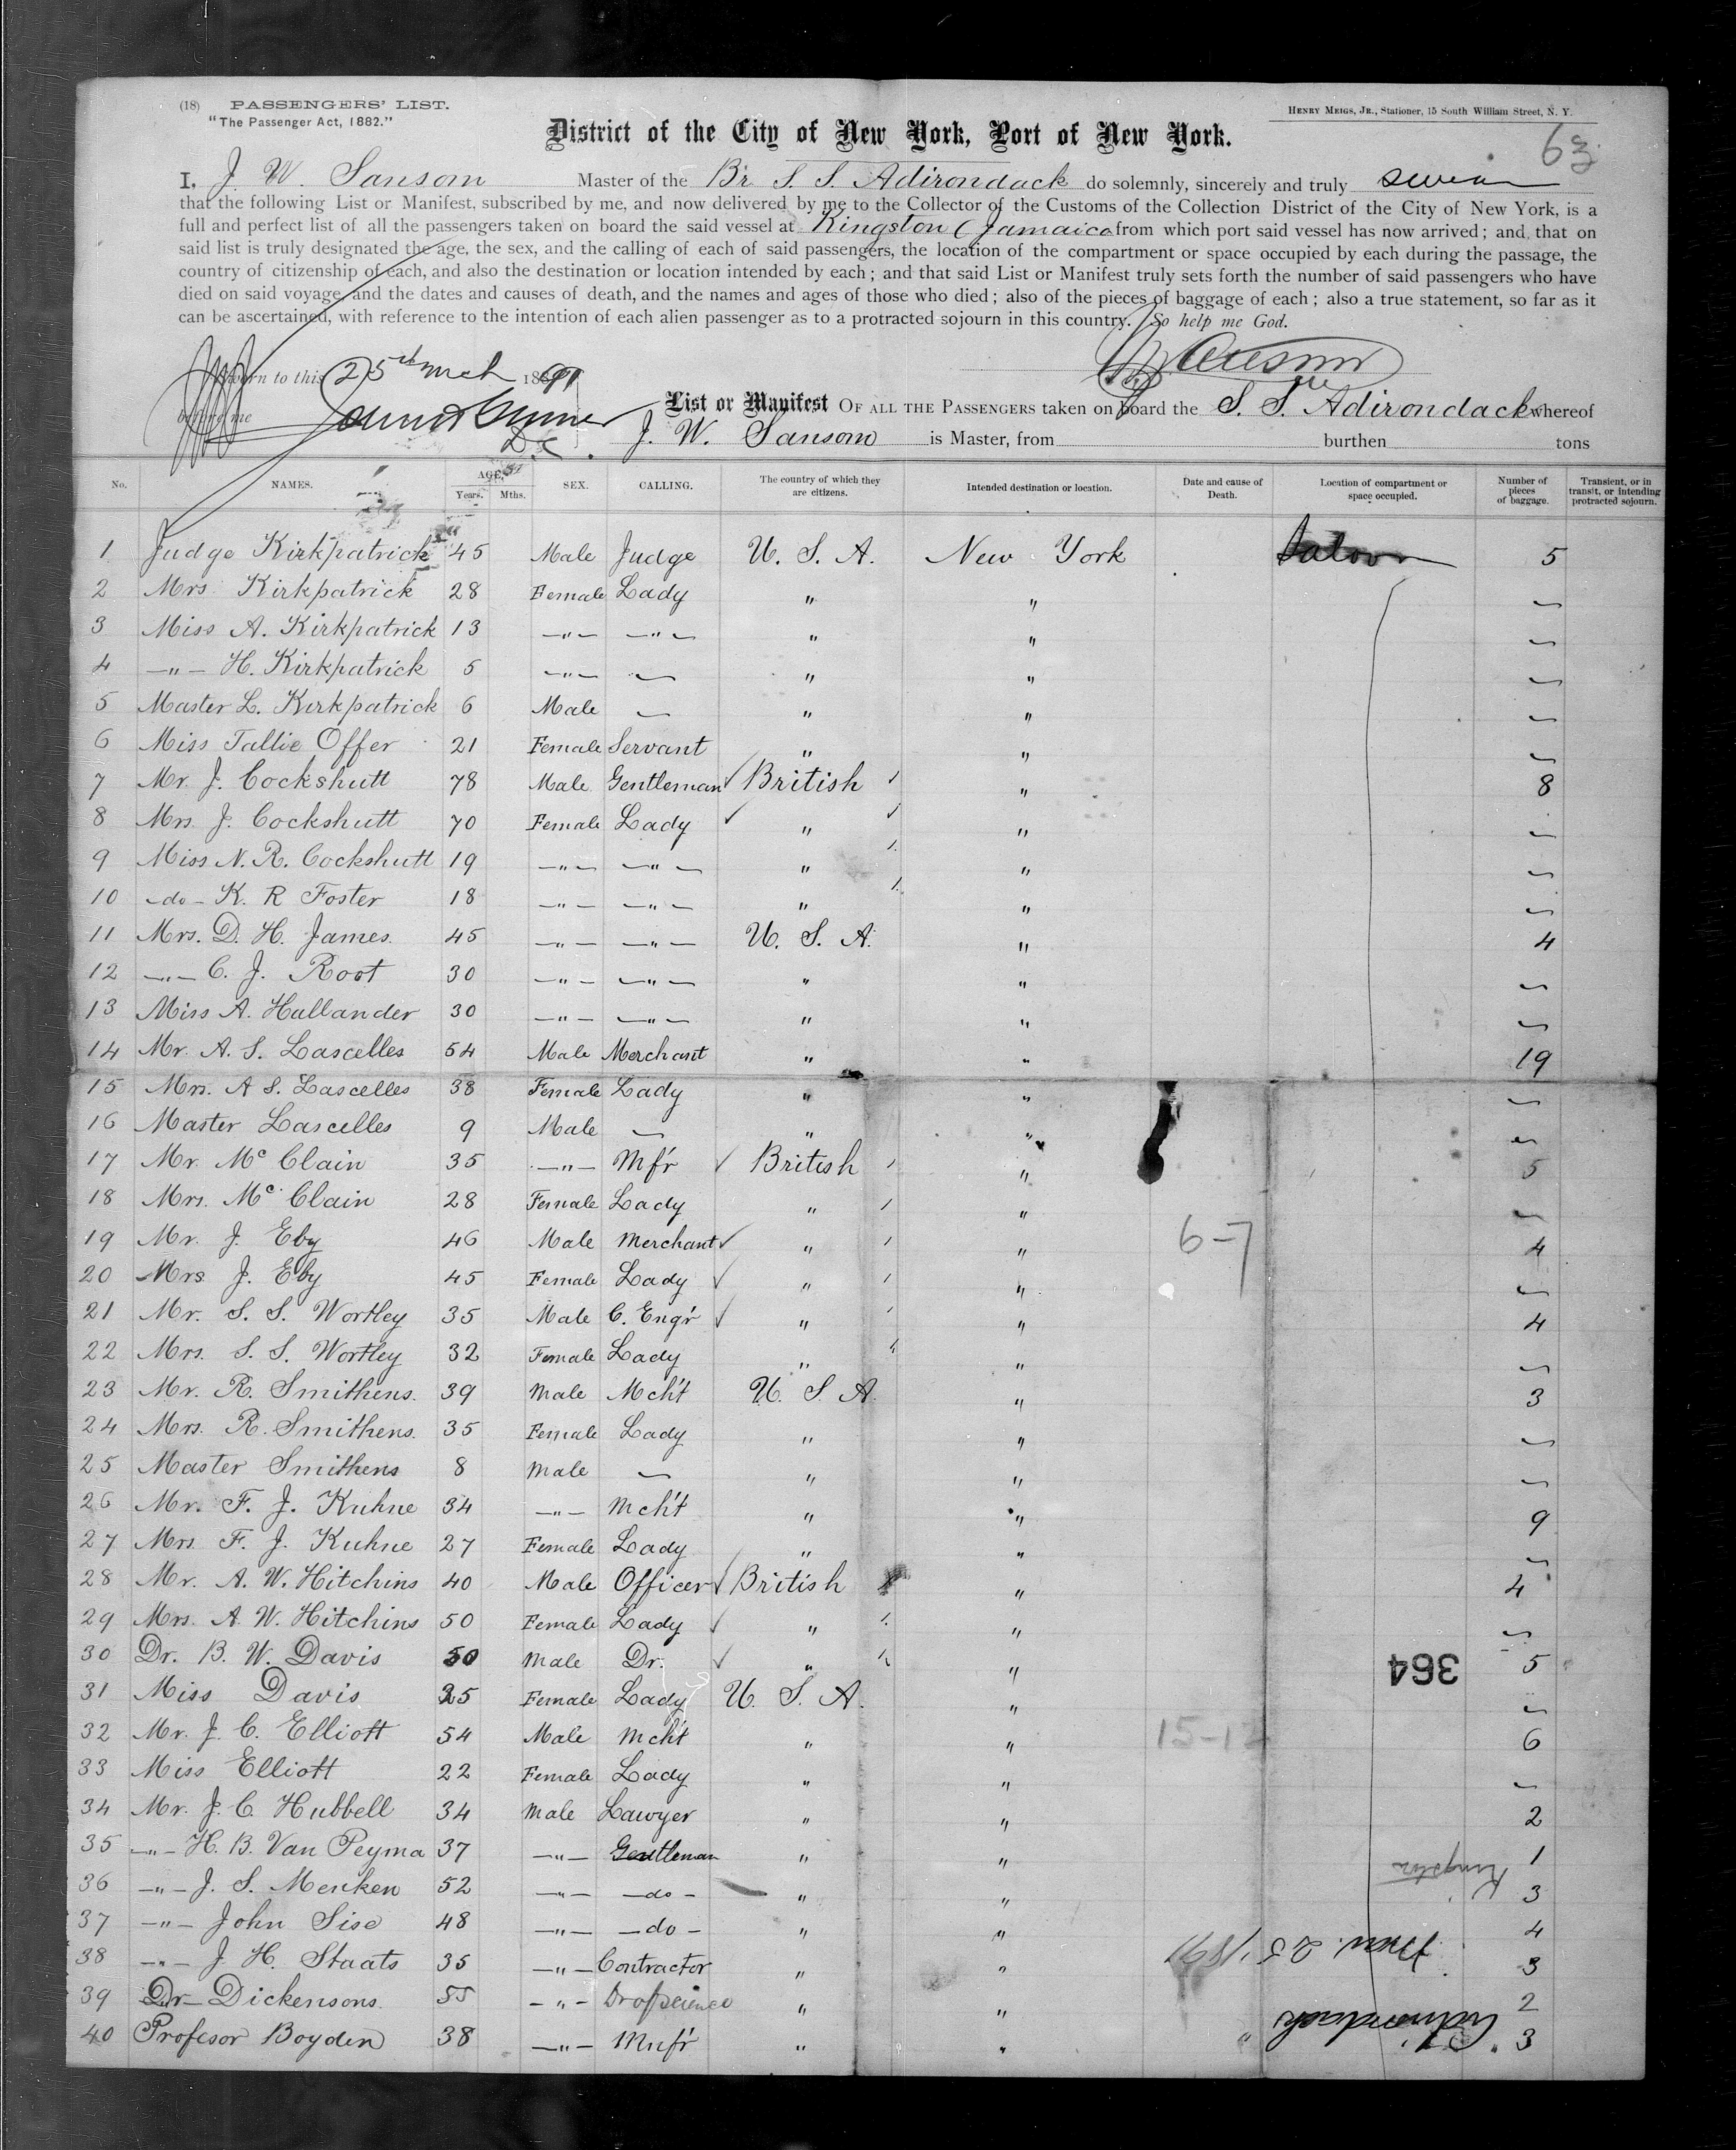 (18) PASSENGERS' LIST.
"The Passenger Act, 1882."
HENRY MEIGS, JR., Stationer, 15 South William Street, N. Y.
63
District of the City of New York, Port of New York.
I, J. W. Sansom Master of the Br S. S. Adirondack do solemnly, sincerely and truly swear
that the following List or Manifest, subscribed by me, and now delivered by me to the Collector of the Customs of the Collection District of the City of New York, is a
full and perfect list of all the passengers taken on board the said vessel at Kingston (Jamaica from which port said vessel has now arrived; and that on
said list is truly designated the age, the sex, and the calling of each of said passengers, the location of the compartment or space occupied by each during the passage, the
country of citizenship of each, and also the destination or location intended by each; and that said List or Manifest truly sets forth the number of said passengers who have
died on said voyage, and the dates and causes of death, and the names and ages of those who died; also of the pieces of baggage of each; also a true statement, so far as it
can be ascertained, with reference to the intention of each alien passenger as to a protracted sojourn in this country. So help me God.
Sworn to this 25th Mch 1891
before me
D.C.
List or Manifest OF ALL THE PASSENGERS taken on board the S. S. Adirondack whereof
J. W. Sansom is Master, from burthen tons
No. NAMES. AGE. Years. Mths. SEX. CALLING. The country of which they are citizens. Intended destination or location. Date and cause of Death. Location of compartment or space occupied. Number of pieces of baggage. Transient, or in transit, or intending protracted sojourn.
1 Judge Kirkpatrick 45 Male Judge U. S. A. New York Saloon 5
2 Mrs Kirkpatrick 28 Female Lady " " —
3 Miss A. Kirkpatrick 13 —"— —"— " " —
4 —"— H. Kirkpatrick 5 —"— — " " —
5 Master L. Kirkpatrick 6 Male — " " —
6 Miss Tallie Offer 21 Female Servant " " —
7 Mr. J. Cockshutt 78 Male Gentleman British " 8
8 Mrs J. Cockshutt 70 Female Lady " " —
9 Miss N. R. Cockshutt 19 —"— —"— " " —
10 —do— K. R Foster 18 —"— —"— " " —
11 Mrs. D. H. James 45 —"— —"— U. S. A. " 4
12 —"— C. J. Root 30 —"— —"— " " —
13 Miss A. Hallander 30 —"— —"— " " —
14 Mr. A. S. Lascelles 54 Male Merchant " " 19
15 Mrs. A S. Lascelles 38 Female Lady " " —
16 Master Lascelles 9 Male — " " —
17 Mr. Mc Clain 35 —"— Mf'r British " 5
18 Mrs. Mc Clain 28 Female Lady " " —
19 Mr. J. Eby 46 Male Merchant " " 6-7 4
20 Mrs J. Eby 45 Female Lady " " —
21 Mr. S. S. Wortley 35 Male C. Eng'r " " 4
22 Mrs. S. S. Wortley 32 Female Lady " " —
23 Mr. R. Smithens. 39 Male Mch't U. S. A. " 3
24 Mrs. R. Smithens. 35 Female Lady " " —
25 Master Smithens 8 Male — " " —
26 Mr. F. J. Kuhne 34 —"— Mch't " " 9
27 Mrs F. J. Kuhne 27 Female Lady " " —
28 Mr. A. W. Hitchins 40 Male Officer British " 4
29 Mrs. A. W. Hitchins 50 Female Lady " " —
30 Dr. B. W. Davis 50 Male Dr. " " 364 5
31 Miss Davis 25 Female Lady U. S. A. " —
32 Mr. J. C. Elliott 54 Male Mch't " " 15-12 6
33 Miss Elliott 22 Female Lady " " —
34 Mr. J. C. Hubbell 34 Male Lawyer " " 2
35 —"— H. B. Van Peyma 37 —"— Gentleman " " 1
Kingston
36 —"— J. S. Menken 52 —"— —do— " " 3
37 —"— John Sise 48 —"— —do— " " 4
25, 1891
38 —"— J. H. Staats 35 —"— Contractor " " 3
39 Dr— Dickensons. 55 —"— Dr of science " " 2
Adirondack
40 Profesor Boyden 38 —"— Mnf'r " " 3